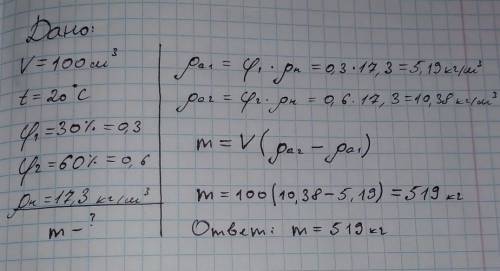 Дано:
V = 100 см³
t = 20°C
φ₁ = 30% = 0,3
φ₂ = 60% = 0,6
ρн = 17,3 кг/м³
m - ?
ρа1 = φ₁ · ρн = 0,3 · 17,3 = 5,19 кг/м³
ρа2 = φ₂ · ρн = 0,6 · 17,3 = 10,38 кг/м³
m = V (ρа2 - ρа1)
m = 100 (10,38 - 5,19) = 519 кг
Ответ: m = 519 кг